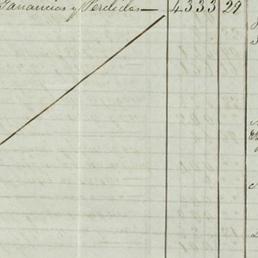 Ganancias y Perdidas — 4333 29